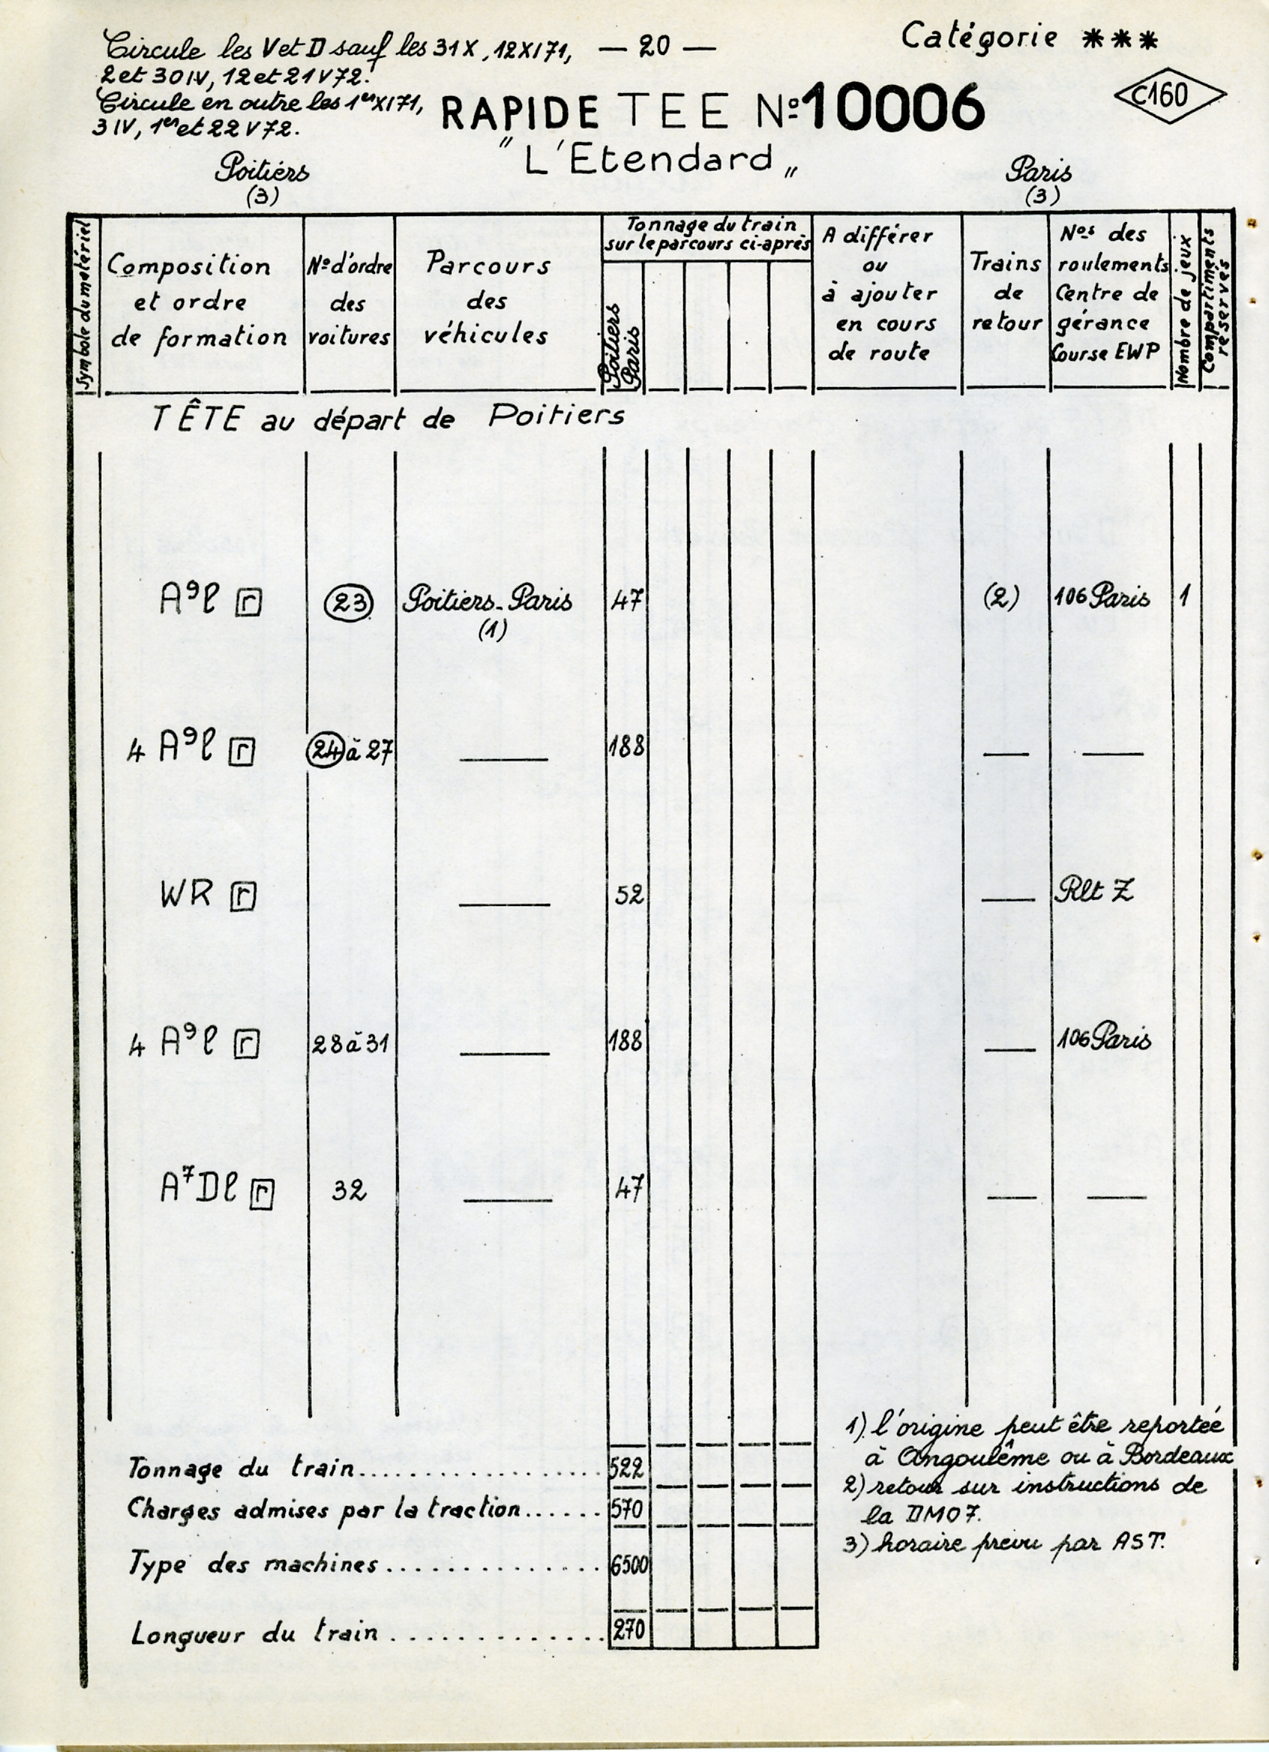 Circule les V et D sauf les 31 X, 12 XI 71, — 20 — Catégorie ***
2 et 30 IV, 12 et 21 V 72.
Circule en outre les 1er XI 71,
3 IV, 1er et 22 V 72.
RAPIDE TEE Nº 10006
C160
"L'Etendard"
Poitiérs
(3)
Paris
(3)
Symbole du matériel
Composition
et ordre
de formation
Nº d'ordre
des
voitures
Parcours
des
véhicules
Tonnage du train
sur le parcours ci-après
Poitiers
Paris
A différer
ou
à ajouter
en cours
de route
Trains
de
retour
Nos des
roulements
Centre de
gérance
Course EWP
Nombre de jeux
Compartiments
réservés
TÊTE au départ de Poitiers
A9l r 23 Poitiers-Paris 47 (2) 106 Paris 1
(1)
4 A9l r 24 à 27 — 188 — —
WR r — 52 — Rlt Z
4 A9l r 28 à 31 — 188 — 106 Paris
A7Dl r 32 — 47 — —
Tonnage du train................ 522
Charges admises par la traction...... 570
Type des machines.............. 6500
Longueur du train.............. 270
1) l'origine peut être reportée
à Angoulême ou à Bordeaux
2) retour sur instructions de
la DMO7.
3) horaire prévu par AST.